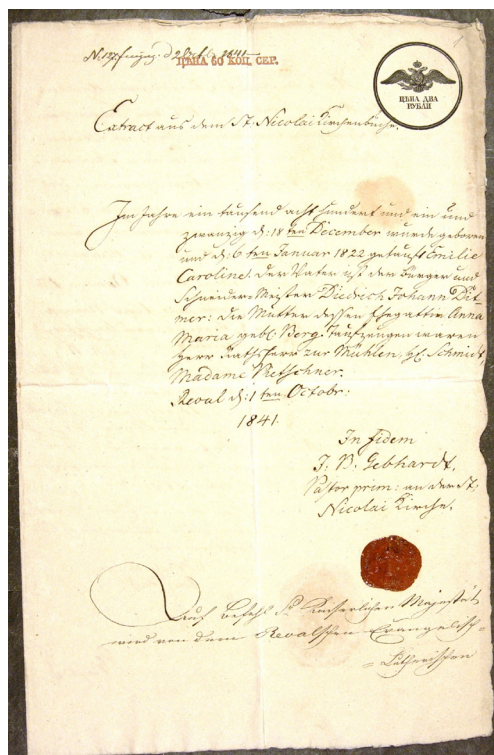 ЦѢНА 60 КОП. СЕР.
ЦѢНА ДВА
РУБЛИ
Extract aus dem St. Nicolai Kirchenbuche.
Im Jahre ein tausend acht hundert und ein und
zwanzig d: 18 ten December wurde geboren
und d: 6 ten Januar 1822 getauft Emilie
Caroline. Der Vater ist der Bürger und
Schneider-Meister Diedrich Johann Dit-
mer: die Mutter dessen Ehegattin Anna
Maria geb. Berg. Taufzeugen waren
Herr Rathsherr zur Mühlen, Schmidt
Madame
Reval d: 1 ten Octobr:
1841.
In fidem
Gebhardt,
Pastor prim: an der St.
Nicolai Kirche.
Auf Befehl Kaiserlichen Majestät
wird von dem Revalschen Evangelisch-
Lutherischen